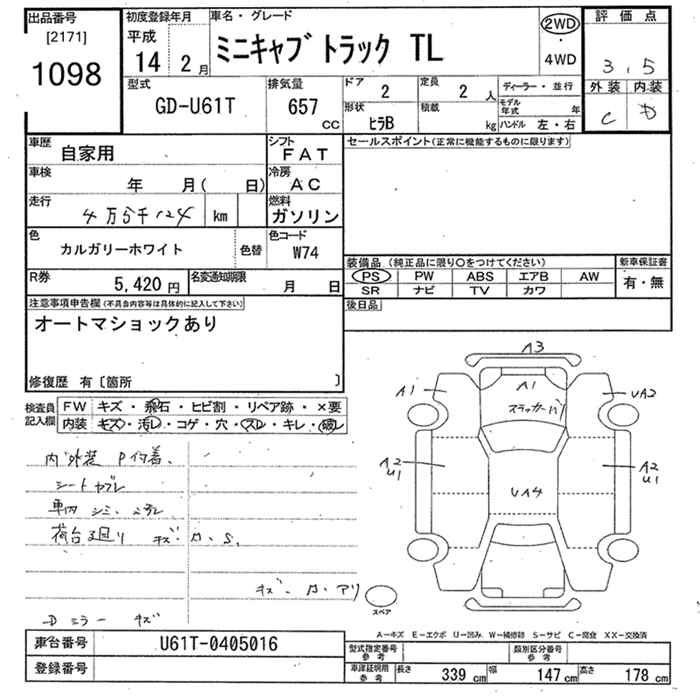 出品番号 初度登録年月 車名・グレード 2WD 評価点
[2171] 平成
1098 14 2月 ミニキャブ トラック TL 4WD 3.5
型式 排気量 ドア 2 定員 2人 ディーラー・並行 外装 内装
GD-U61T 657 CC 形状 ヒラB 積載 kg モデル年式 年 C D
ハンドル 左・右
車歴 自家用 シフト FAT セールスポイント(正常に機能するものに限ります)
車検 年 月( 日) 冷房 AC
走行 4万5千124 km 燃料 ガソリン
色 カルガリーホワイト 色替 色コード W74
装備品(純正品に限り○をつけてください) 新車保証書
R券 5,420円 名変通知期限 月 日 PS PW ABS エアB AW 有・無
SR ナビ TV カワ
注意事項申告欄(不具合内容等は具体的に記入して下さい) 後日品
オートマショックあり
修復歴 有〔箇所 〕
検査員記入欄 FW キズ・飛石・ヒビ割・リペア跡・×要
内装 キズ・汚レ・コゲ・穴・スレ・キレ・破レ
A3
A1 A1 UA2
内外装 P付着、
シートヤブレ A2 U1 A2 U1
車内 シミ、
UA4
荷台廻り キズ・A、S、
キズ・A・アリ
スペア
Dミラー キズ
A－キズ E－エクボ U－凹み W－補修跡 S－サビ C－腐食 XX－交換済
車台番号 U61T-0405016 型式指定番号 参考 類別区分番号 参考
登録番号 車庫証明用 参考 長さ 339 cm 幅 147 cm 高さ 178 cm